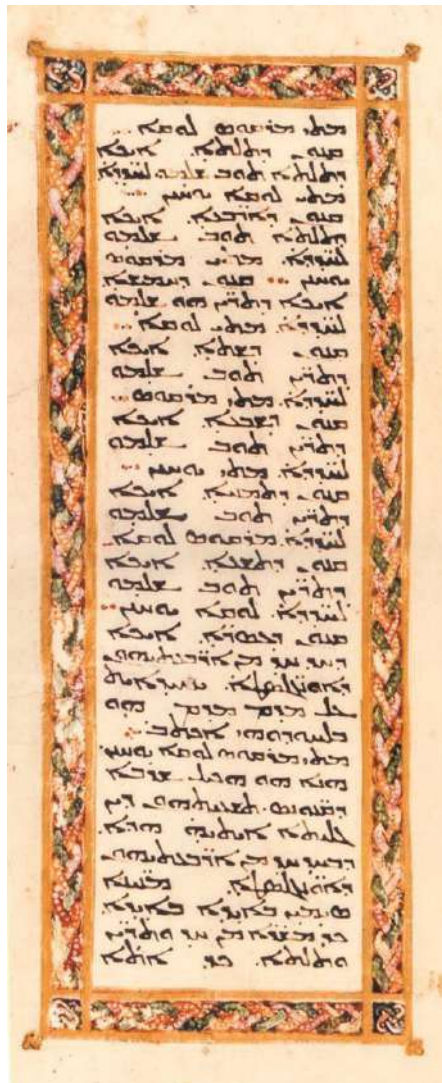 ܡܬܝ ܡܪܩܘܣ ܠܘܩܐ
ܩܢܘܢ ܕܬܠܬܐ ܐܝܟܐ
ܕܬܠܬܐ ܬܘܒ ܫܠܡܘ ܠܚܕܕܐ
ܡܬܝ ܠܘܩܐ ܝܘܚܢܢ
ܩܢܘܢ ܕܐܪܒܥܐ. ܐܝܟܐ
ܕܬܠܬܐ ܬܘܒ ܫܠܡܘ
ܠܚܕܕܐ. ܡܬܝ ܡܪܩܘܣ
ܝܘܚܢܢ ܩܢܘܢ ܕܚܡܫܐ
ܐܝܟܐ ܕܬܪ̈ܝܢ ܗܘ ܫܠܡܘ
ܠܚܕܕܐ. ܡܬܝ ܠܘܩܐ
ܩܢܘܢ ܕܫܬܐ. ܐܝܟܐ
ܕܬܪ̈ܝܢ ܬܘܒ ܫܠܡܘ
ܠܚܕܕܐ. ܡܬܝ ܡܪܩܘܣ
ܩܢܘܢ ܕܫܒܥܐ. ܐܝܟܐ
ܕܬܪ̈ܝܢ ܬܘܒ ܫܠܡܘ
ܠܚܕܕܐ. ܡܬܝ ܝܘܚܢܢ
ܩܢܘܢ ܕܬܡܢܝܐ. ܐܝܟܐ
ܕܬܪ̈ܝܢ ܬܘܒ ܫܠܡܘ
ܠܚܕܕܐ. ܡܪܩܘܣ ܠܘܩܐ
ܩܢܘܢ ܕܬܫܥܐ. ܐܝܟܐ
ܕܬܪ̈ܝܢ ܬܘܒ ܫܠܡܘ
ܠܚܕܕܐ. ܠܘܩܐ ܝܘܚܢܢ
ܩܢܘܢ ܕܥܣܪܐ. ܐܝܟܐ
ܕܚܕ ܚܕ ܡܢ ܐܪܒܥܬܝܗܘܢ
ܕܐܘܢܓܠܣܛܐ. ܝܚܝܕܐܝܬ
ܥܠ ܡܕܡ ܡܕܡ ܗܘ
ܒܠܚܘܕܘܗܝ ܐܟܬܒ
ܡܬܝ ܡܪܩܘܣ ܠܘܩܐ ܝܘܚܢܢ
ܗܢܐ ܗܘ ܗܟܝܠ ܫܪܒܐ
ܬܫܥܝܬܗܘܢ ܕܝܢ
ܓܠܝܬܐ ܐܝܬܝܗ ܗܕܐ
ܕܒܚܕ ܚܕ ܡܢ ܐܪܒܥܬܝܗܘܢ
ܕܐܘܢܓܠܣܛܐ. ܡܢܝܢܐ
ܣܝܡܝܢ ܒܐܝܕܐ ܒܐܝܕܐ
ܟܕ ܡܫܪܐ ܡܢ ܚܕ ܘܬܪ̈ܝܢ
ܘܬܠܬܐ. ܟܕ ܐܙܠܐ